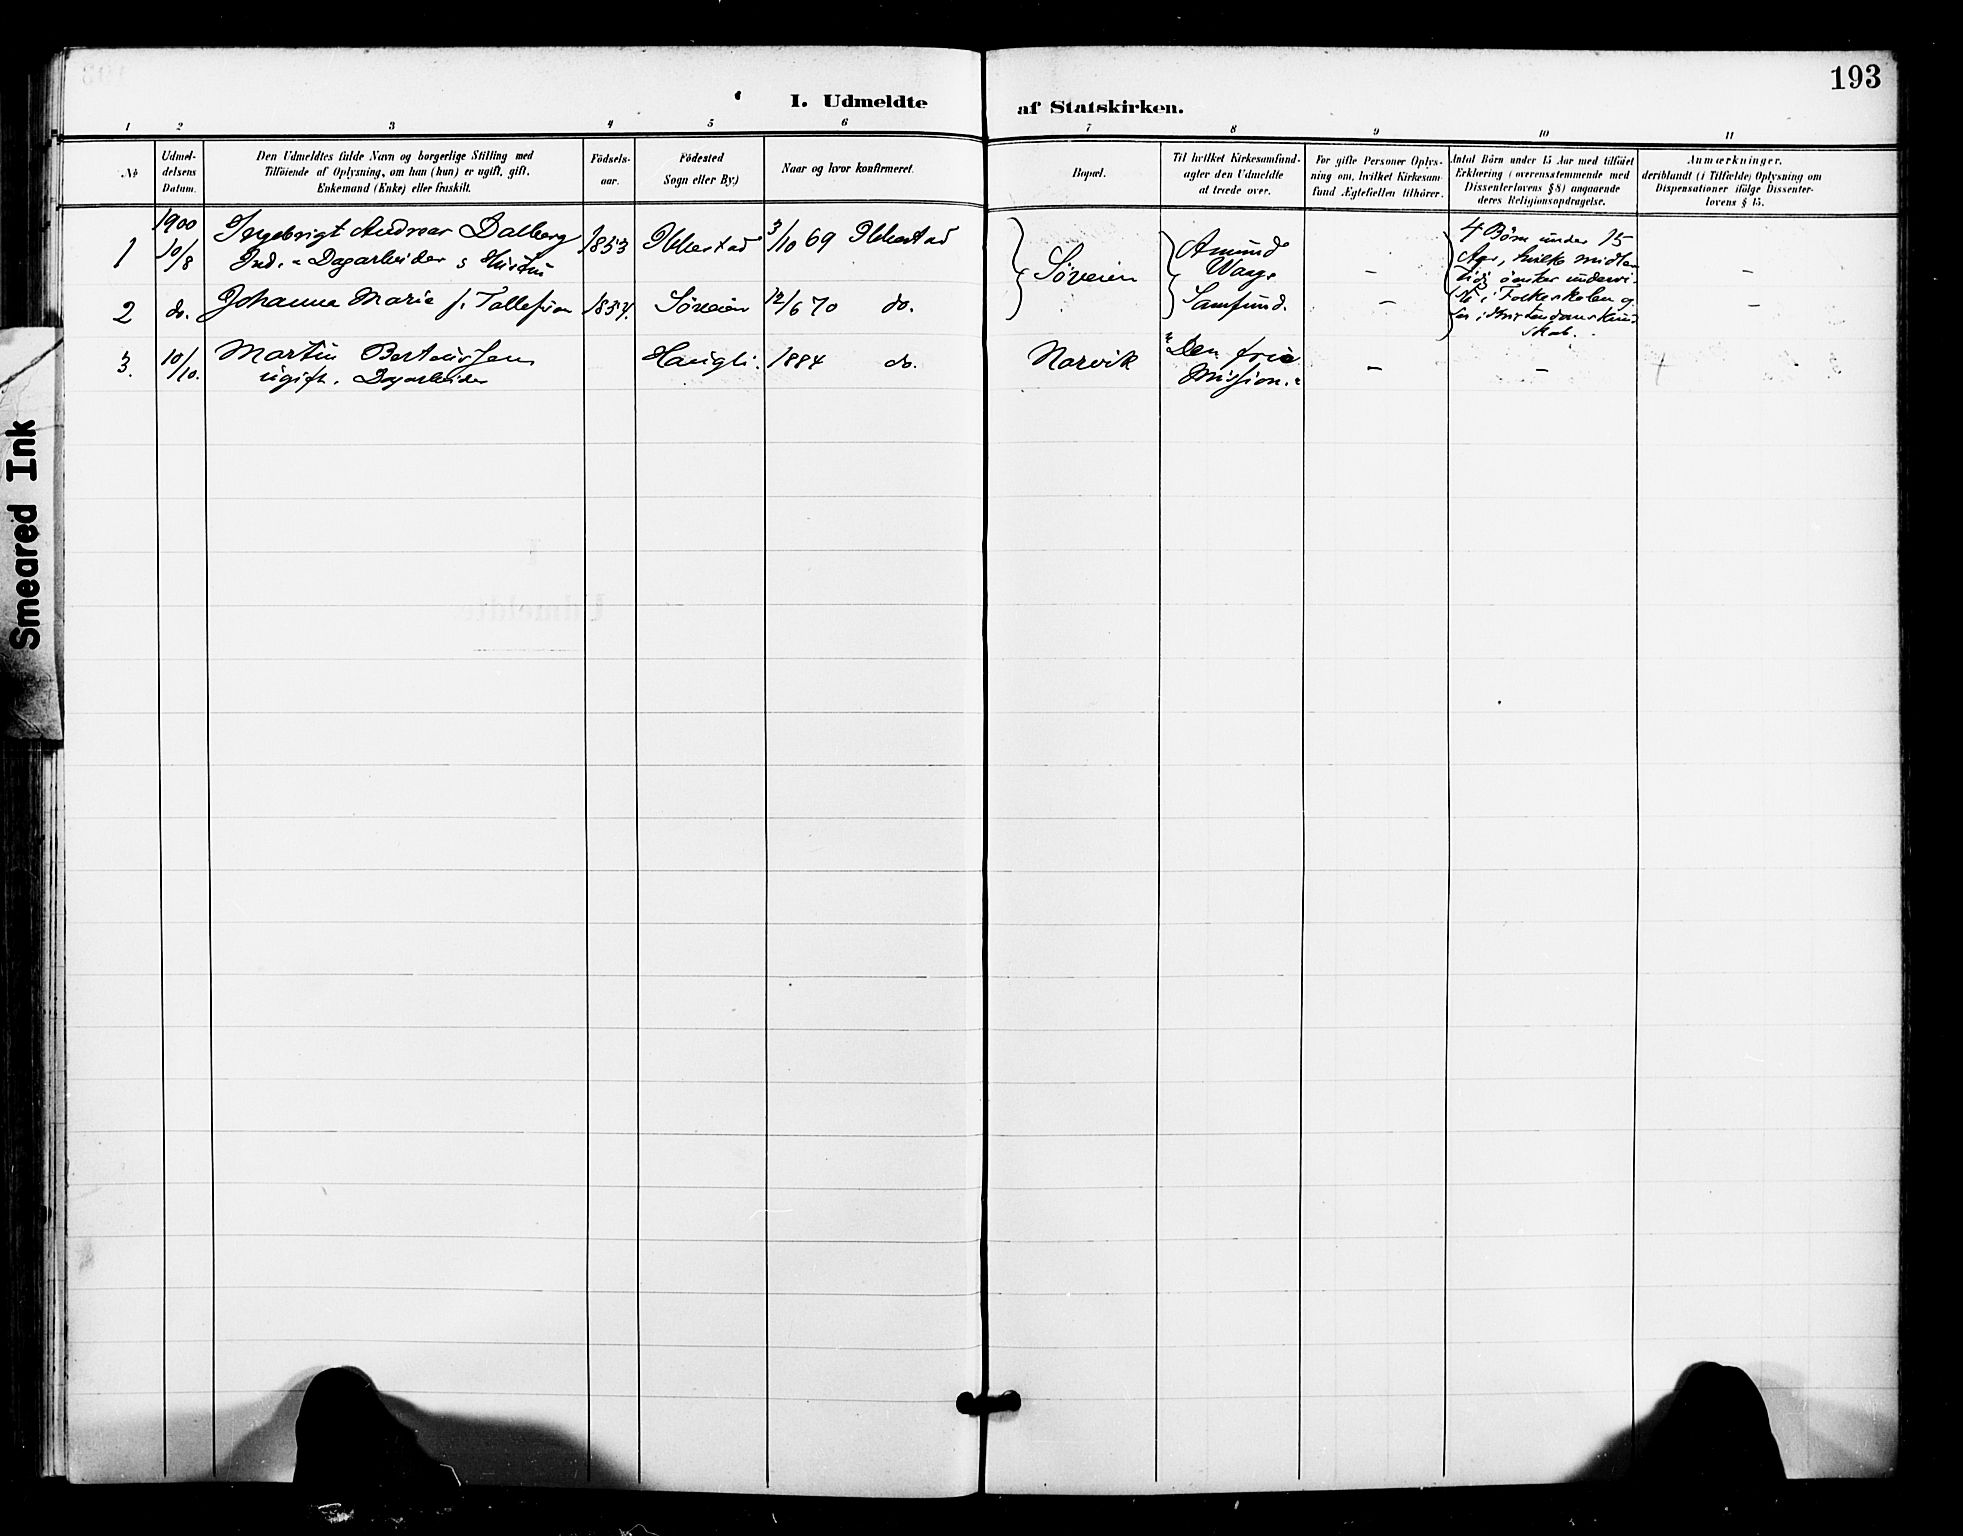 193
I. Udmeldte af Statskirken.
1 2 3 4 5 6 7 8 9 10 11
No
Udmel-
delsens
Datum.
Den Udmeldtes fulde Navn og borgerlige Stilling med
Tilföiende af Oplysning, om han (hun) er ugift, gift,
Enkemand (Enke) eller fraskilt.
Födsels-
aar.
Födested
Sogn eller By.)
Naar og hvor konfirmeret.
Bopæl.
Til hvilket Kirkesamfund-
agter den Udmeldte
at træde over.
For gifte Personer Oplys-
ning om, hvilket Kirkesam-
fund Ægtefællen tilhörer.
Antal Börn under 15 Aar med tilföiet
Erklæring (overensstemmende med
Dissenterlovens § 8) angaaende
deres Religionsopdragelse.
Anmærkninger,
deriblandt (i Tilfælde) Oplysning om
Dispensationer ifölge Dissenter-
lovens § 15.
1900
1 10/8 Ingebrigt Andreas Dalberg 1853 Ibbestad 3/10 69 Ibbestad
Ind. - Dagarbeider & Hustru
2 do. Johanna Maria f. Tollefsen 1854. Söveien 12/6 70 do.
Söveien
Amund
Waage
Samfund.
4 Börn under 15
Aar, hvilke midler-
tidig önskes undervi-
st i Folkeskolen og-
saa i Kristendomskund-
skab.
3. 10/10. Martin Berteussen Haugli. 1884 do. Narvik "Den frie
ugift. Dagarbeider Mission."
Smeared Ink